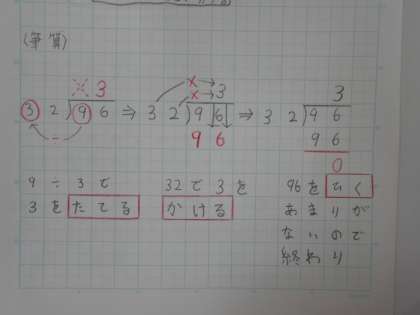 (筆算)
※ 3
3 2)9 6 ⇒ 3 2)9 6 ⇒ 3 2)9 6
× → 3
× →
3
9 6
9 6
0
9 ÷ 3 で
3 を たてる
32 で 3 を
かける
96 を ひく
あまりが
ないので
終わり